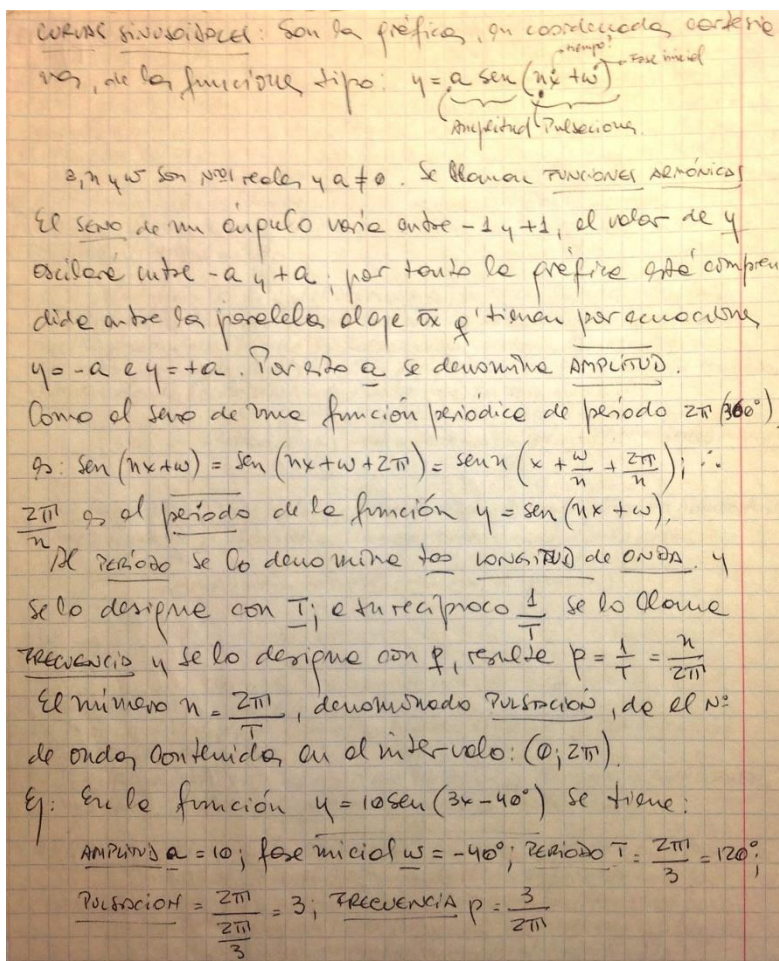 CURVAS SINUSOIDALES: Son la gráfica, en coordenadas cartesia
nas, de las funciones tipo: y = a sen (nx + w)
tiempo
Fase inicial
Amplitud Pulsaciones.
a, n y w son Nros reales y a ≠ 0. Se llaman FUNCIONES ARMÓNICAS
El SENO de un ángulo varía entre -1 y +1, el valor de y
oscilará entre -a y +a; por tanto la gráfica está compren
dida entre las paralelas al eje ox q' tienen por ecuaciones
y = -a e y = +a. Por esto a se denomina AMPLITUD.
Como el seno de una función periódica de período 2π (360°)
es: sen (nx+w) = sen (nx+w+2π) = sen n (x + w/n + 2π/n); ∴
2π/n es el período de la función y = sen (nx + w).
Al PERÍODO se lo denomina LONGITUD de ONDA y
se lo designa con T; a su recíproco 1/T se lo llama
FRECUENCIA y se lo designa con p, resulta p = 1/T = n/2π
El número n = 2π/T, denominado PULSACIÓN, da el Nº
de ondas contenidas en el intervalo: (0; 2π).
Ej: En la función y = 10 sen (3x - 40°) se tiene:
AMPLITUD a = 10; fase inicial w = -40°; PERÍODO T = 2π/3 = 120°;
PULSACIÓN = 2π/(2π/3) = 3; FRECUENCIA p = 3/2π